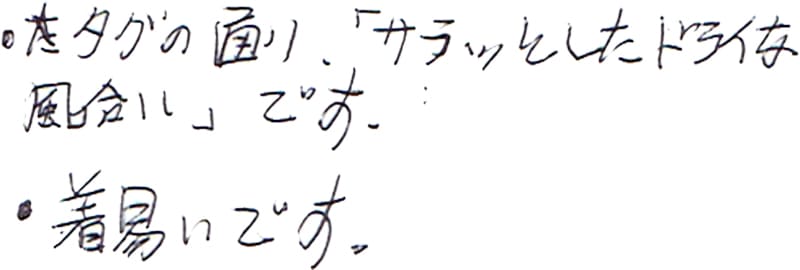 ・タグの通り、「サラッとしたドライな
風合い」です。
・着易いです。